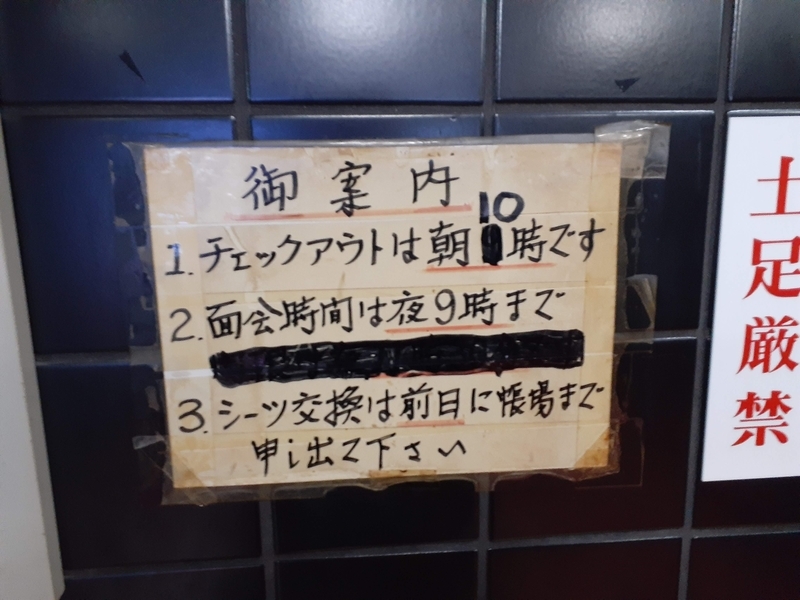 御案内
1. チェックアウトは朝10時です
2. 面会時間は夜9時まで
3. シーツ交換は前日に帳場まで
申し出て下さい
土足厳禁